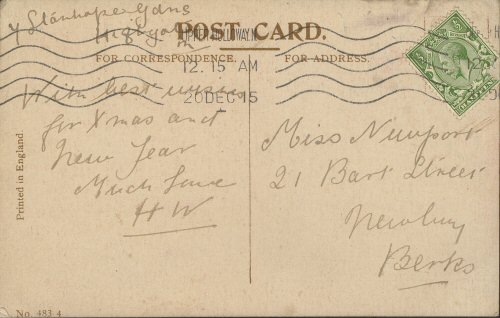 4 Stanhope Gdns
Highgate
POST CARD.
FOR CORRESPONDENCE.
FOR ADDRESS.
12.15 AM
20 DEC 15
With best wishes
for Xmas and
New Year
Much love
HW
Miss Newport
21 Bart Street
Newbury
Berks
Printed in England
No. 483 4